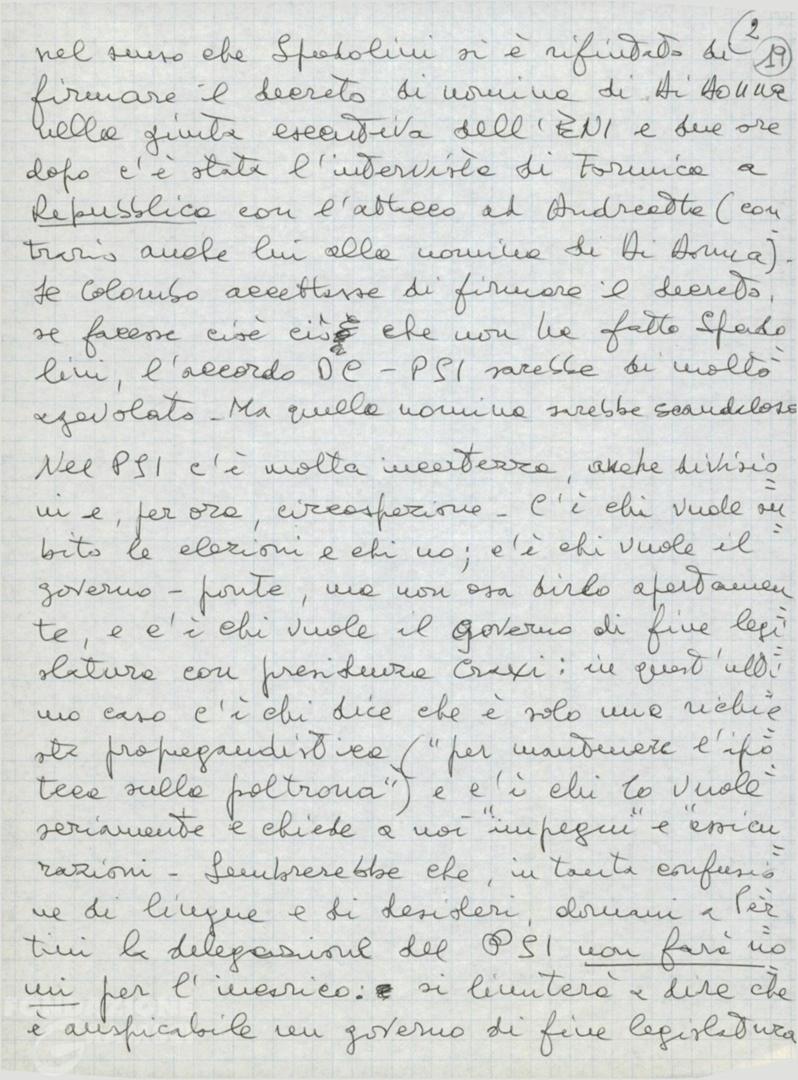 2
19
nel senso che Spadolini si è rifiutato di
firmare il decreto di nomina di Di Donna
nella giunta esecutiva dell'ENI e due ore
dopo c'è stata l'intervista di Formica a
Repubblica con l'attacco ad Andreatta (con
trario anche lui alla nomina di Di Donna).
Se Colombo accettasse di firmare il decreto,
se facesse cioè ciò che non ha fatto Spado=
lini, l'accordo DC - PSI sarebbe di molto
agevolato - Ma quella nomina sarebbe scandalosa
Nel PSI c'è molta incertezza, anche divisio=
ni e, per ora, circospezione - C'è chi vuole su=
bito le elezioni e chi no; c'è chi vuole il
governo - ponte, ma non osa dirlo apertamen=
te, e c'è chi vuole il governo di fine legi=
slatura con presidenza Craxi: in quest'ulti=
mo caso c'è chi dice che è solo una richie=
sta propagandistica ("per mantenere l'ipo=
teca sulla poltrona") e c'è chi lo vuole
seriamente e chiede a noi "impegni" e "assicu=
razioni - Sembrerebbe che, in tanta confusio=
ne di lingue e di desideri, domani a Per=
tini la delegazione del PSI non farà no=
mi per l'incarico: si limiterà a dire che
è auspicabile un governo di fine legislatura